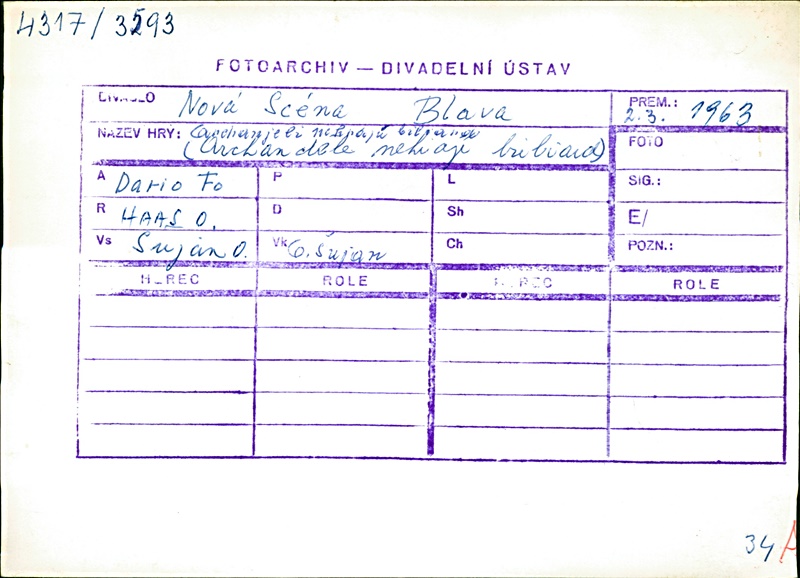 4317/3593
FOTOARCHIV — DIVADELNÍ ÚSTAV
DIVADLO Nová Scéna Blava
PREM.: 2.3. 1963
NÁZEV HRY: Archanjeli
(Archandělé nehrají
FOTO
A Dario Fo P L SIG.:
R HAAS O. D Sh E/
Vs Šuján O. Vk O. Šujan Ch POZN.:
HEREC ROLE HEREC ROLE
34